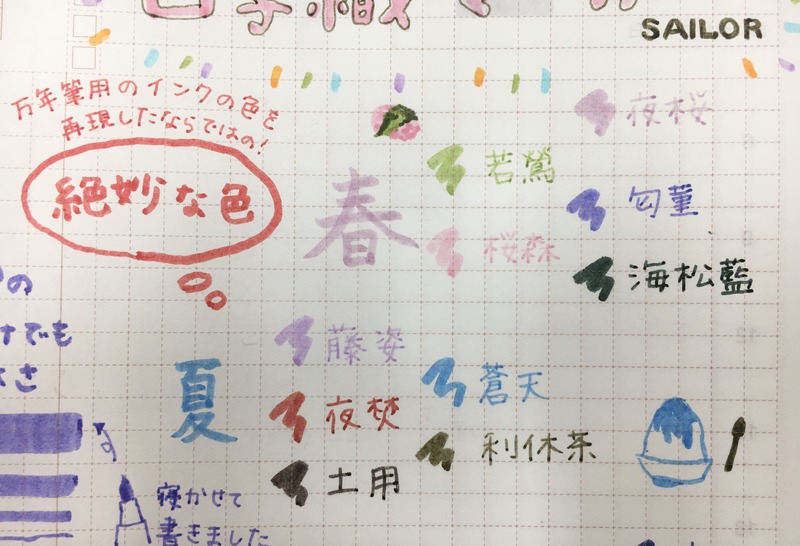 四季織
SAILOR
万年筆用のインクの色を
再現したならではの!
絶妙な色
春
若鶯
桜森
夜桜
匂菫
海松藍
夏
藤姿
夜焚
土用
蒼天
利休茶
の
けでも
寝かせて
書きました